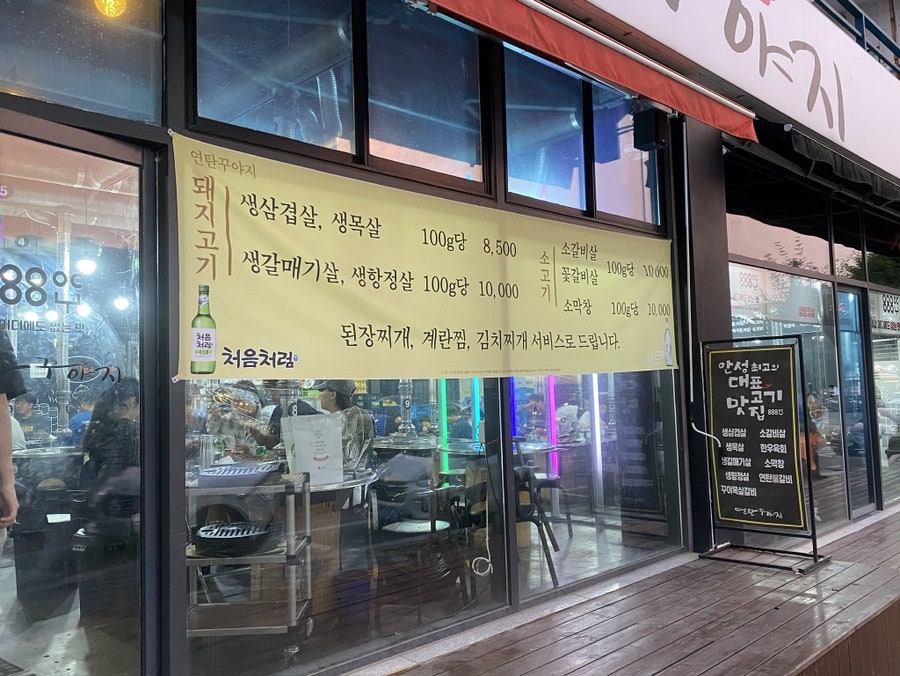 야지
연탄꾸야지
돼지고기
생삼겹살, 생목살 100g당 8,500
생갈매기살, 생항정살 100g당 10,000
소고기
소갈비살
꽃갈비살 100g당 10,000
소막창 100g당 10,000
된장찌개, 계란찜, 김치찌개 서비스로 드립니다.
처음처럼
처음처럼
5
4
888
어디에도 없는 맛
꾸야지
9
888
안성 최고의
대표고기
맛집 888
생삼겹살 소갈비살
생목살 한우육회
생갈매기살 소막창
생항정살 연탄불갈비
꾸야목살갈비
연탄꾸야지